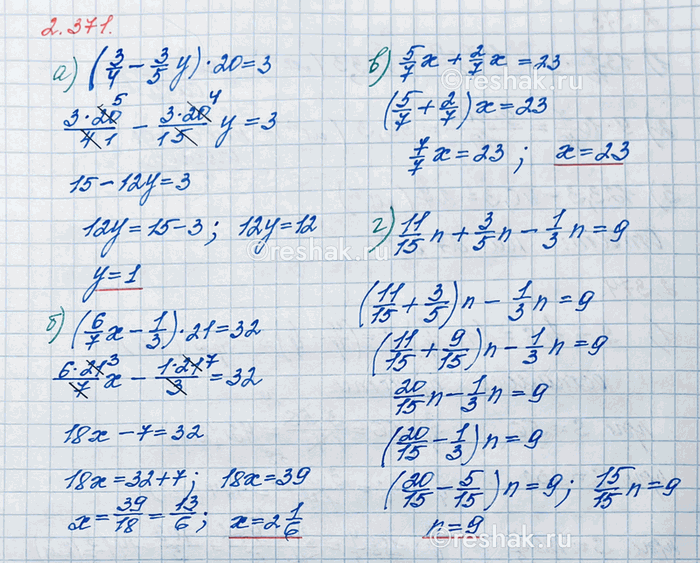 2.371.
а) (3/4 − 3/5 y) · 20 = 3
3·20 5/4 1 − 3·20 4/1 5 y = 3
15 − 12y = 3
12y = 15 − 3 ; 12y = 12
y = 1
б) (6/7 x − 1/3) · 21 = 32
6·21 3/7 x − 1·21 7/3 = 32
18x − 7 = 32
18x = 32 + 7 ; 18x = 39
x = 39/18 = 13/6 ; x = 2 1/6
в) 5/7 x + 2/7 x = 23
(5/7 + 2/7) x = 23
7/7 x = 23 ; x = 23
г) 11/15 n + 3/5 n − 1/3 n = 9
(11/15 + 3/5) n − 1/3 n = 9
(11/15 + 9/15) n − 1/3 n = 9
20/15 n − 1/3 n = 9
(20/15 − 1/3) n = 9
(20/15 − 5/15) n = 9 ; 15/15 n = 9
n = 9
© reshak.ru
© reshak.ru
© reshak.ru